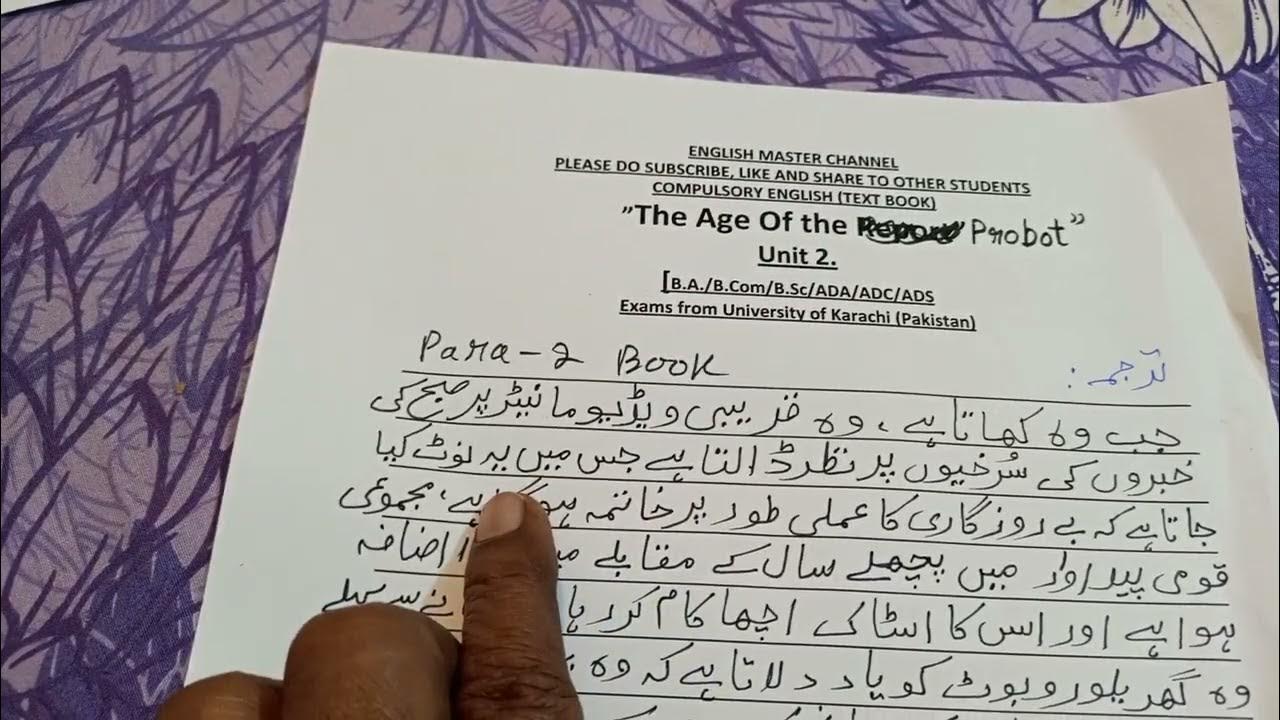 ENGLISH MASTER CHANNEL
PLEASE DO SUBSCRIBE, LIKE AND SHARE TO OTHER STUDENTS
COMPULSORY ENGLISH (TEXT BOOK)
"The Age Of the Probot"
Unit 2.
[B.A./B.Com/B.Sc/ADA/ADC/ADS
Exams from University of Karachi (Pakistan)
Para-2 Book
ترجمہ :
جب وہ کھاتا ہے، وہ قریبی ویڈیو مانیٹر پر صبح کی
خبروں کی سُرخیوں پر نظر ڈالتا ہے جس میں یہ نوٹ کیا
جاتا ہے کہ بے روزگاری کا عملی طور پر خاتمہ ہو ہے، مجموعی
قومی پیداوار میں پچھلے سال کے مقابلے اضافہ
ہوا ہے اور اس کا اسٹاک اچھا کام کر رہا سے پہلے
وہ گھریلو روبوٹ کو یاد دلاتا ہے کہ وہ